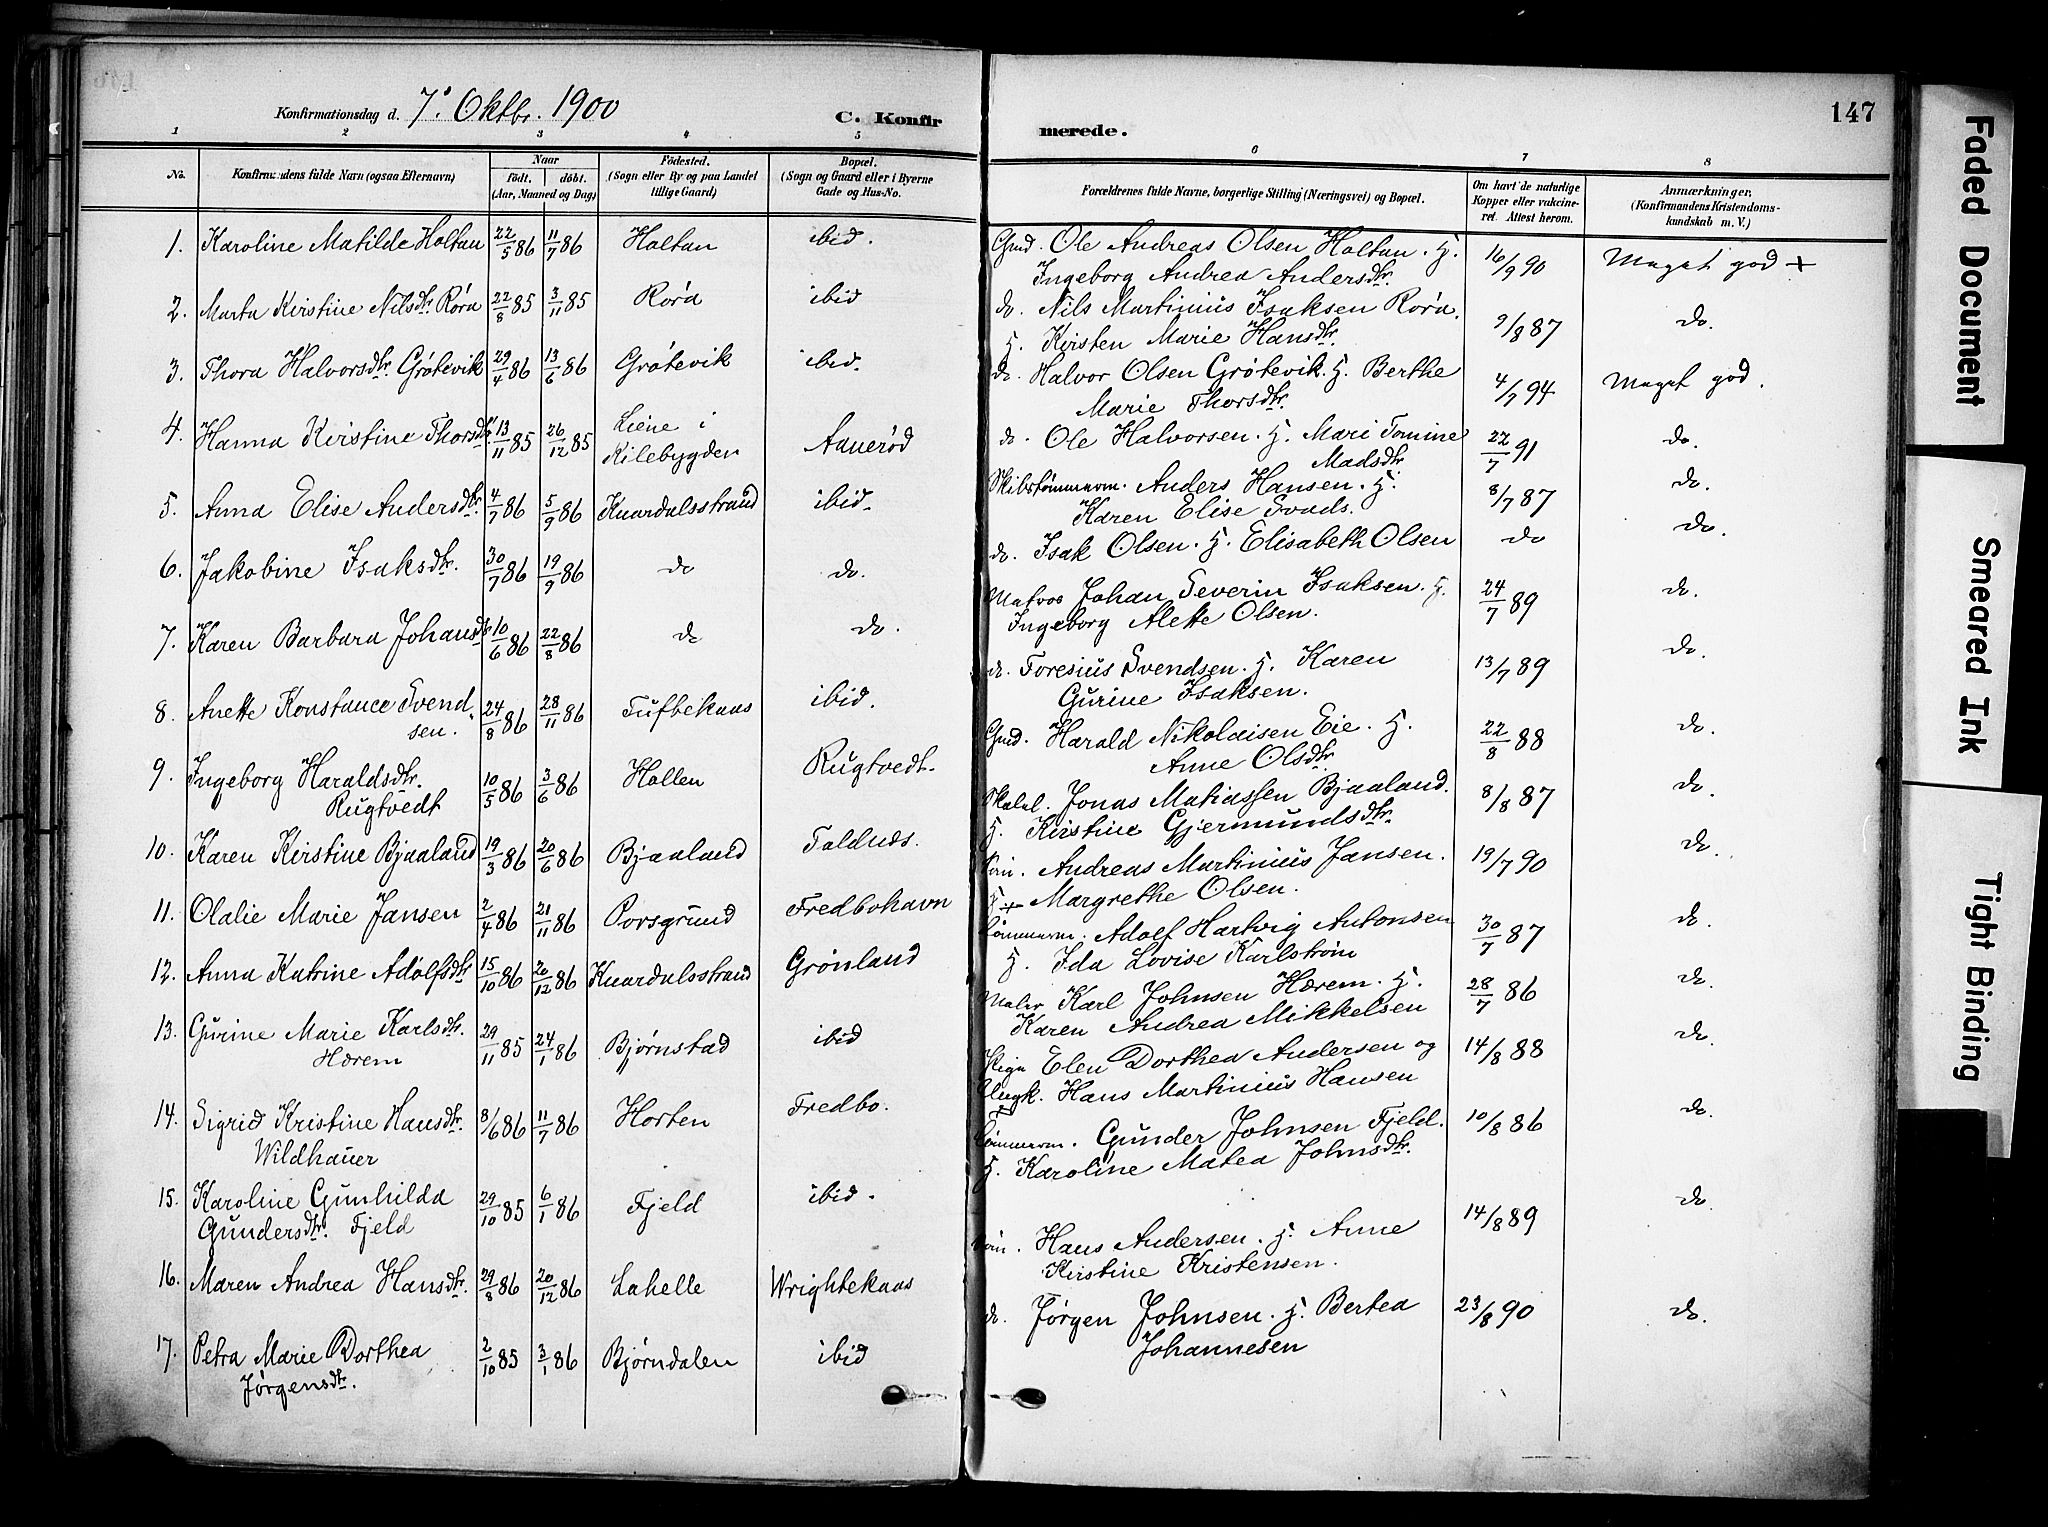 Konfirmationsdag d. 7de Oktbr. 1900
C. Konfir
merede.
147
1 2 3 4 5
6 7 8
No.
Konfirmandens fulde Navn (ogsaa Efternavn)
Naar
født. døbt.
(Aar, Maaned og Dag)
Fødested.
(Sogn eller By og paa Landet
tillige Gaard)
Bopæl.
(Sogn og Gaard eller i Byerne
Gade og Hus-No.
Forældrenes fulde Navne, borgerlige Stilling (Næringsvei) og Bopæl.
Om havt de naturlige
Kopper eller vakcine-
ret. Attest herom.
Anmærkninger.
(Konfirmandens Kristendoms-
kundskab m. V.)
1. Karoline Matilde Holtan 22/5 86 11/7 86 Holtan ibid.
Gmd. Ole Andreas Olsen Holtan. H.
Ingeborg Andrea Andersdtr. 16/9 90 Meget god +
2. Marta Kirstine Nilsdtr. Rørå 22/8 85 3/11 85 Rørå ibid
do. Nils Martinius Isaksen Rørå.
H. Kirsten Marie Hansdtr. 9/8 87 do.
3. Thora Halvorsdtr. Grøtevik 29/4 86 13/6 86 Grøtevik ibid.
do. Halvor Olsen Grøtevik. H. Berthe
Marie Thorsdtr. 4/7 94 Meget god.
4. Hanna Kirstine Thorsdtr 13/11 85 26/12 85 Liene i
Kilebygden Aanerød
do. Ole Halvorsen. H. Mari Tomine
Madsdtr. 22/7 91 do.
5. Anna Elise Andersdtr. 4/7 86 5/9 86 Knardalsstrand ibid.
Skibstømmerm. Anders Hansen. H.
Karen Elise Evads. 8/7 87 do.
6. Jakobine Isaksdtr. 30/7 86 19/9 86 do do.
do. Isak Olsen. H. Elisabeth Olsen do do.
7. Karen Barbara Johansdtr 10/6 86 22/8 86 do do.
Matros Johan Severin Isaksen. H.
Ingeborg Alette Olsen. 24/7 89 do.
8. Anette Konstance Svend-
sen. 24/8 86 28/11 86 Tufbekaas ibid.
do. Toresius Svendsen. H. Karen
Gurine Isaksen. 13/7 89 do.
9. Ingeborg Haraldsdtr.
Rugtvedt 10/5 86 3/6 86 Hollen Rugtvedt.
Gmd. Harald Nikolaisen Eie. H.
Anne Olsdtr. 22/8 88 do.
10. Karen Kirstine Bjaaland 19/3 86 20/6 86 Bjaaland Taldnæs.
Jonas Matiassen Bjaaland.
H. Kirstine Gjermundsdtr. 8/8 87 do.
11. Olalie Marie Jansen 2/4 86 21/11 86 Porsgrund Fredbohavn
Andreas Martinius Jansen.
H + Margrethe Olsen. 19/7 90 do.
12. Anna Katrine Adolfsdtr 15/10 86 26/12 86 Knardalsstrand Grønland
Tømmerm. Adolf Hartvig Antonsen
H. Ida Lovise Karlstrøm 30/7 87 do.
13. Gurine Marie Karlsdtr.
Hærem 29/11 85 24/1 86 Bjørnstad ibid
Maler Karl Johnsen Hærem. H.
Karen Andrea Mikkelsen 28/7 86 do.
14. Sigrid Kristine Hansdtr.
Wildhauer 8/6 86 11/7 86 Horten Fredbo.
Pige Elen Dorthea Andersen og
Ungk. Hans Martinius Hansen 14/8 88 do.
15. Karoline Gunhilda
Gundersdtr. Fjeld 29/10 85 6/1 86 Fjeld ibid.
Tømmerm. Gunder Johnsen Fjeld.
H. Karoline Matea Johnsdtr. 10/8 86 do.
16. Maren Andrea Hansdtr. 29/8 86 20/12 86 Lahelle Wrightekaas
Hans Andersen. H. Anne
Kirstine Kristensen. 14/8 89 do.
17. Petra Marie Dorthea
Jørgensdtr. 2/10 85 3/1 86 Bjørndalen ibid
do. Jørgen Johnsen. H. Bertea
Johannesen 23/8 90 do.
Faded Document
Smeared Ink
Tight Binding